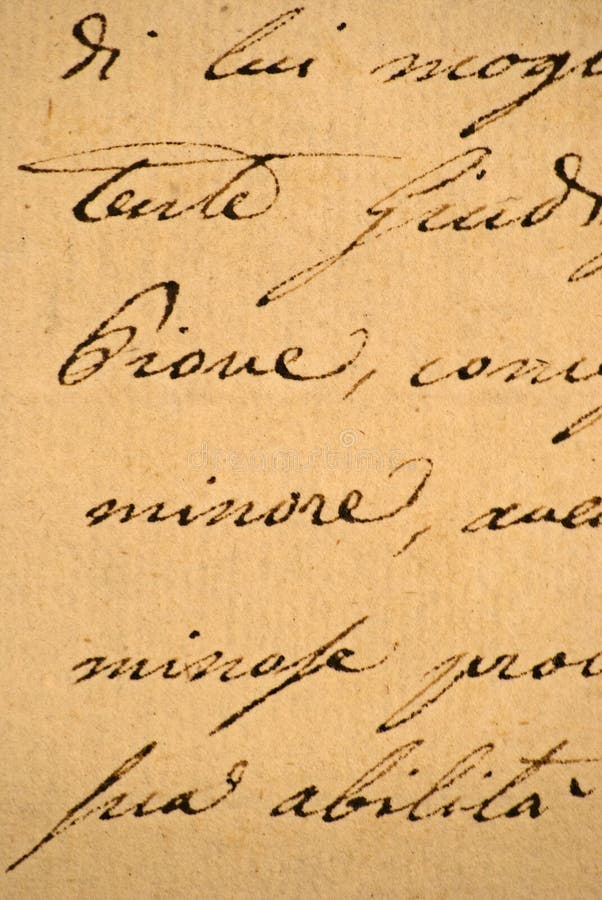 di lui mog
tente Giud
Piove, con
minore, ave
minose pro
sua abilità
dreamstime